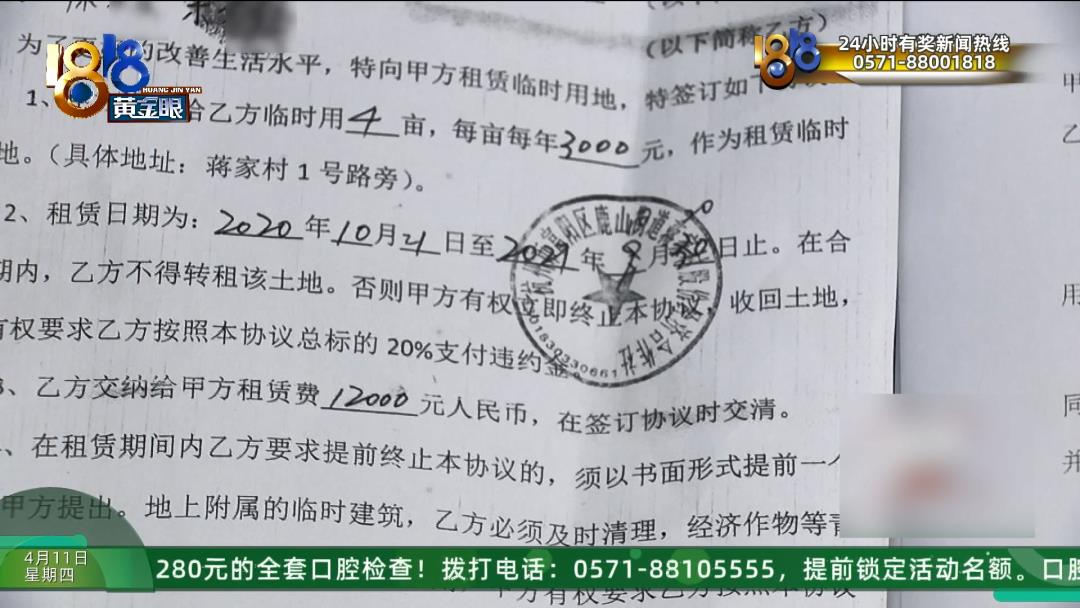 (以下简称乙方)
为了 的改善生活水平，特向甲方租赁临时用地，特签订如下
1、 给乙方临时用 4 亩，每亩每年 3000 元，作为租赁临时
地。（具体地址：蒋家村 1 号路旁）。
2、租赁日期为：2020 年 10 月 21 日至 年 9 月 30 日止。在合
期内，乙方不得转租该土地。否则甲方有权立即终止本协议，收回土地，
有权要求乙方按照本协议总标的 20%支付违约金。
3、乙方交纳给甲方租赁费 12000 元人民币，在签订协议时交清。
、在租赁期间内乙方要求提前终止本协议的，须以书面形式提前一个
甲方提出。地上附属的临时建筑，乙方必须及时清理，经济作物等青
甲方有权要求乙方按照本协议
富阳区鹿山街道 股份经济合作社
1818
HUANG JIN YAN
黄金眼
1818
24小时有奖新闻热线
0571-88001818
甲
乙
用
同
并
4月11日
星期四
280元的全套口腔检查！拨打电话：0571-88105555，提前锁定活动名额。口腔